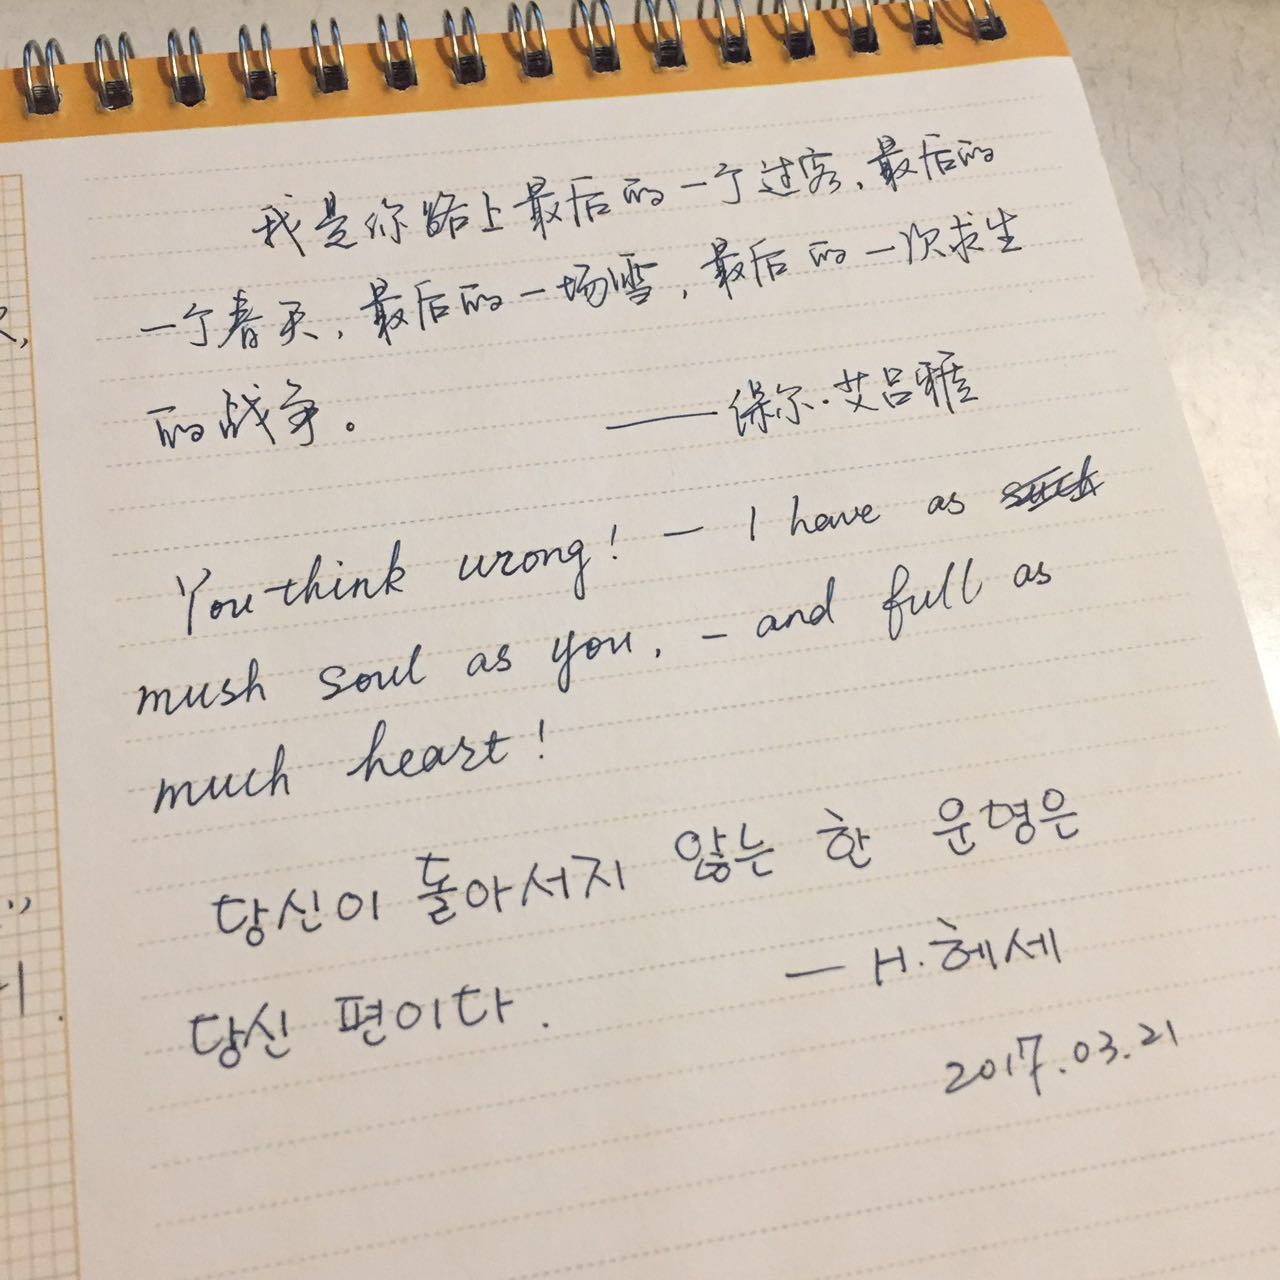 我是你路上最后的一个过客,最后的
一个春天,最后的一场雪,最后的一次求生
的战争。
——保尔·艾吕雅
You think wrong! — I have as
mush soul as you, — and full as
much heart!
당신이 돌아서지 않는 한 운명은
당신 편이다.
— H. 헤세
2017.03.21